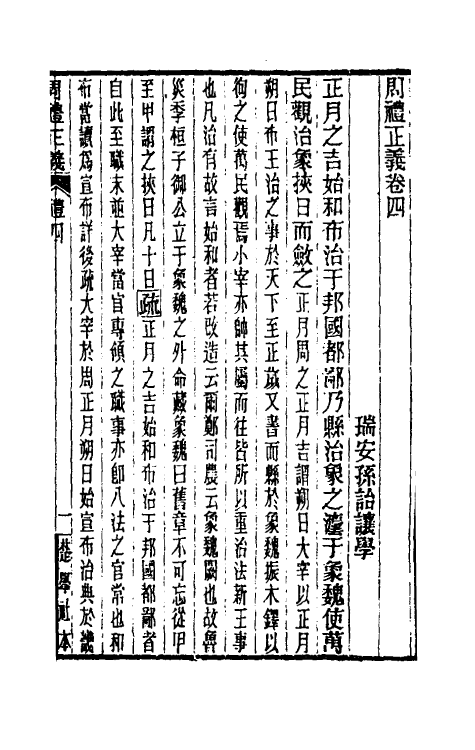 周禮正義卷四
瑞安孫詒讓學
正月之吉始和布治于邦國都鄙乃縣治象之灋于象魏使萬
民觀治象挾日而斂之正月周之正月吉謂朔日大宰以正月
朔日布王治之事於天下至正歲又書而縣於象魏振木鐸以
徇之使萬民觀焉小宰亦帥其屬而往皆所以重治法新王事
也凡治有故言始和者若改造云爾鄭司農云象魏闕也故魯
災季桓子御公立于象魏之外命藏象魏曰舊章不可忘從甲
至甲謂之挾日凡十日疏正月之吉始和布治于邦國都鄙者
自此至職末並大宰當官專領之職事亦卽八法之官常也和
布當讀爲宣布詳後疏大宰於周正月朔日始宣布治典於畿
周禮正義 禮四 一 楚學社本